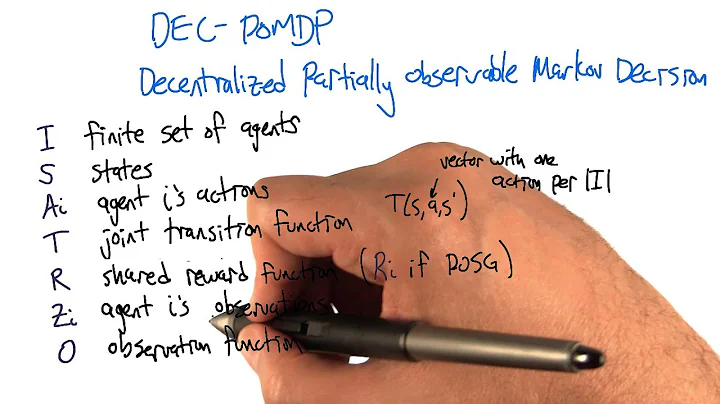 DEC-POMDP
Decentralized Partially Observable Markov Decision
I finite set of agents
S states
Ai agent i's actions
T joint transition function
R shared reward function (Ri if POSG)
Zi agent i's observations
O observation function
vector with one
action per |I|
T(s,a,s')